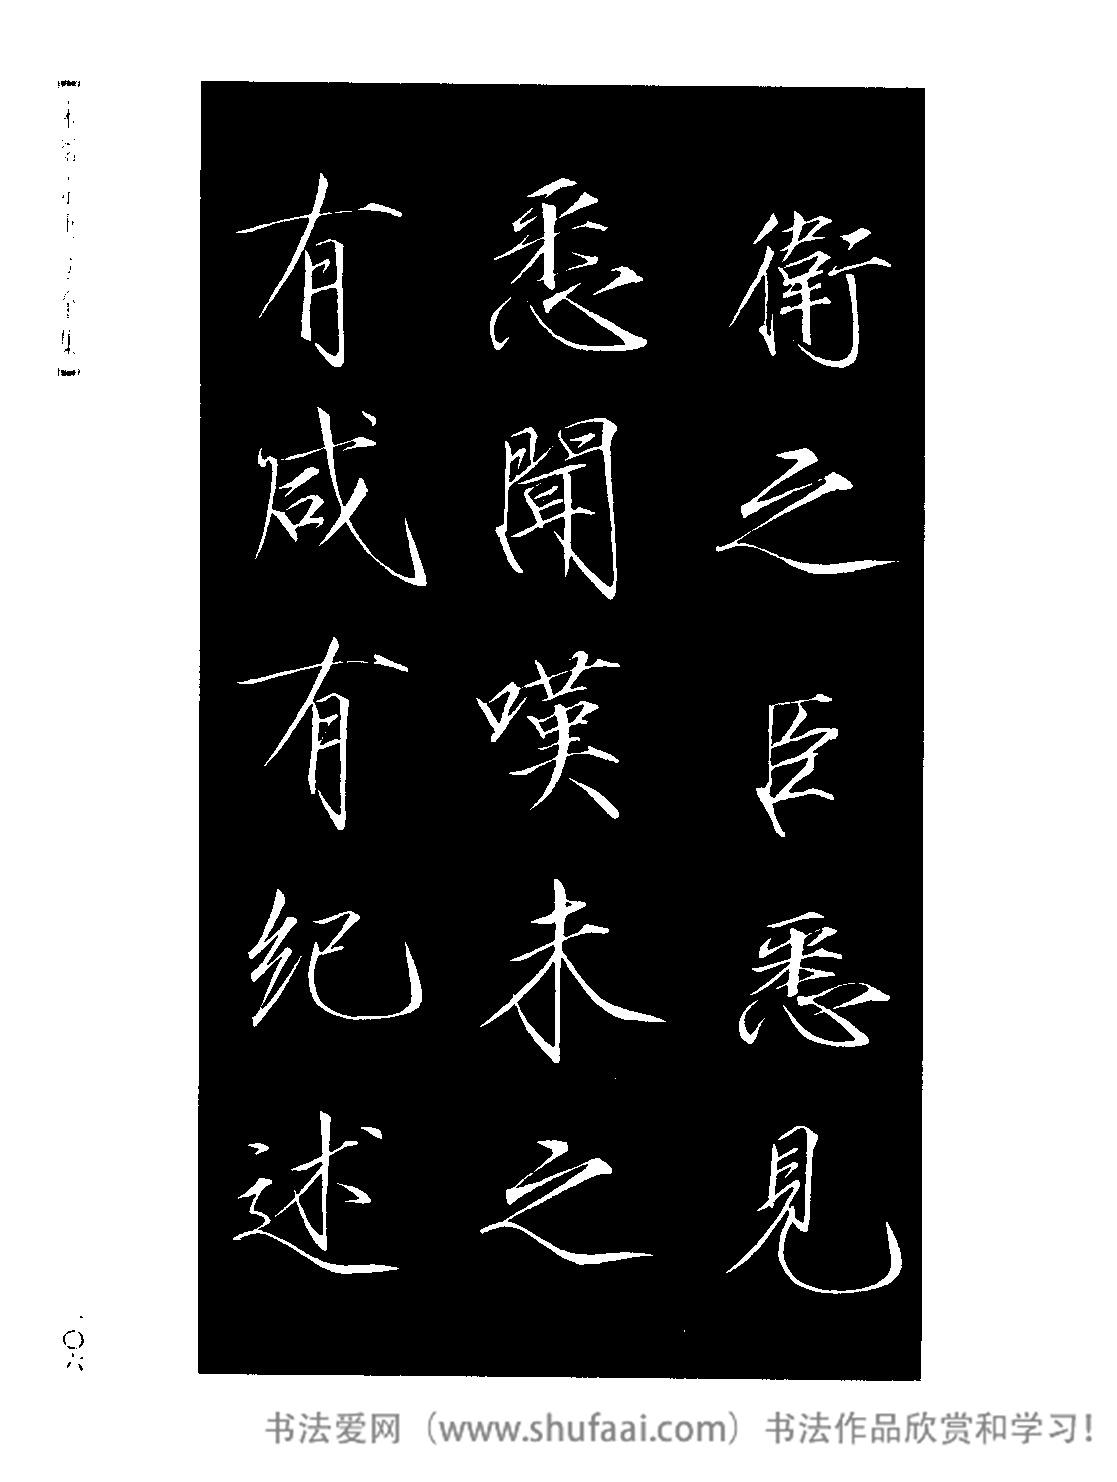 衛之臣悉見
悉聞嘆未之
有咸有紀述
一〇六
书法爱网（www.shufaai.com）书法作品欣赏和学习！